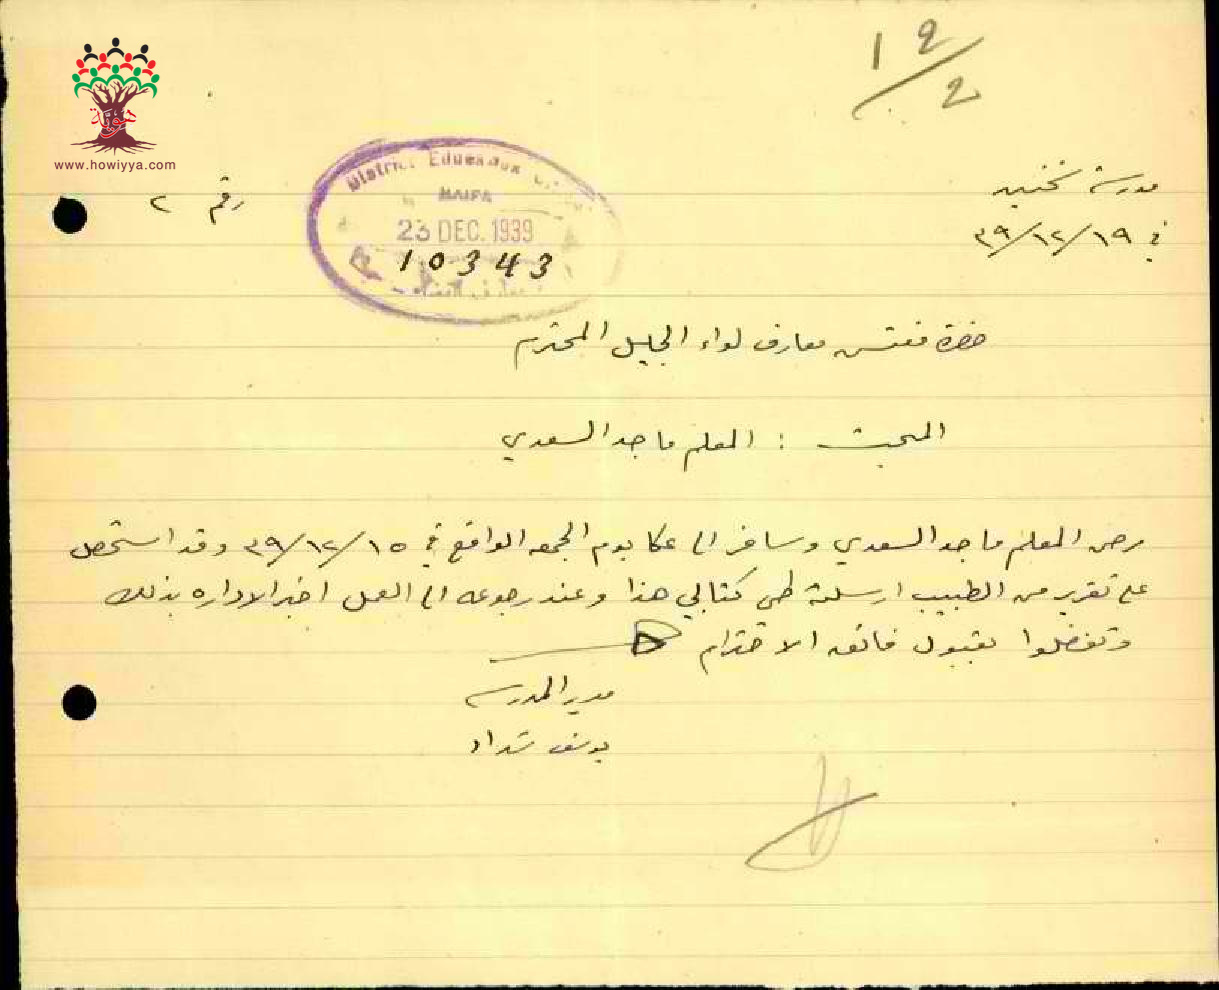 ١٢/٢
www.howiyya.com
District Education
HAIFA
23 DEC. 1939
10343
مدرسة سخنين
رقم ٢
في ١٩/١٢/٣٩
حضرة مفتش معارف لواء الجليل المحترم
المبحث : المعلم ماجد السعدي
مرض المعلم ماجد السعدي وسافر الى عكا يوم الجمعه الواقع في ١٥/١٢/٣٩ وقد استحصل
على تقرير من الطبيب ارسلته طي كتابي هذا وعند رجوعه الى العمل اخبر الاداره بذلك
وتفضلوا بقبول فائق الاحترام
مدير المدرسه
يوسف شداد